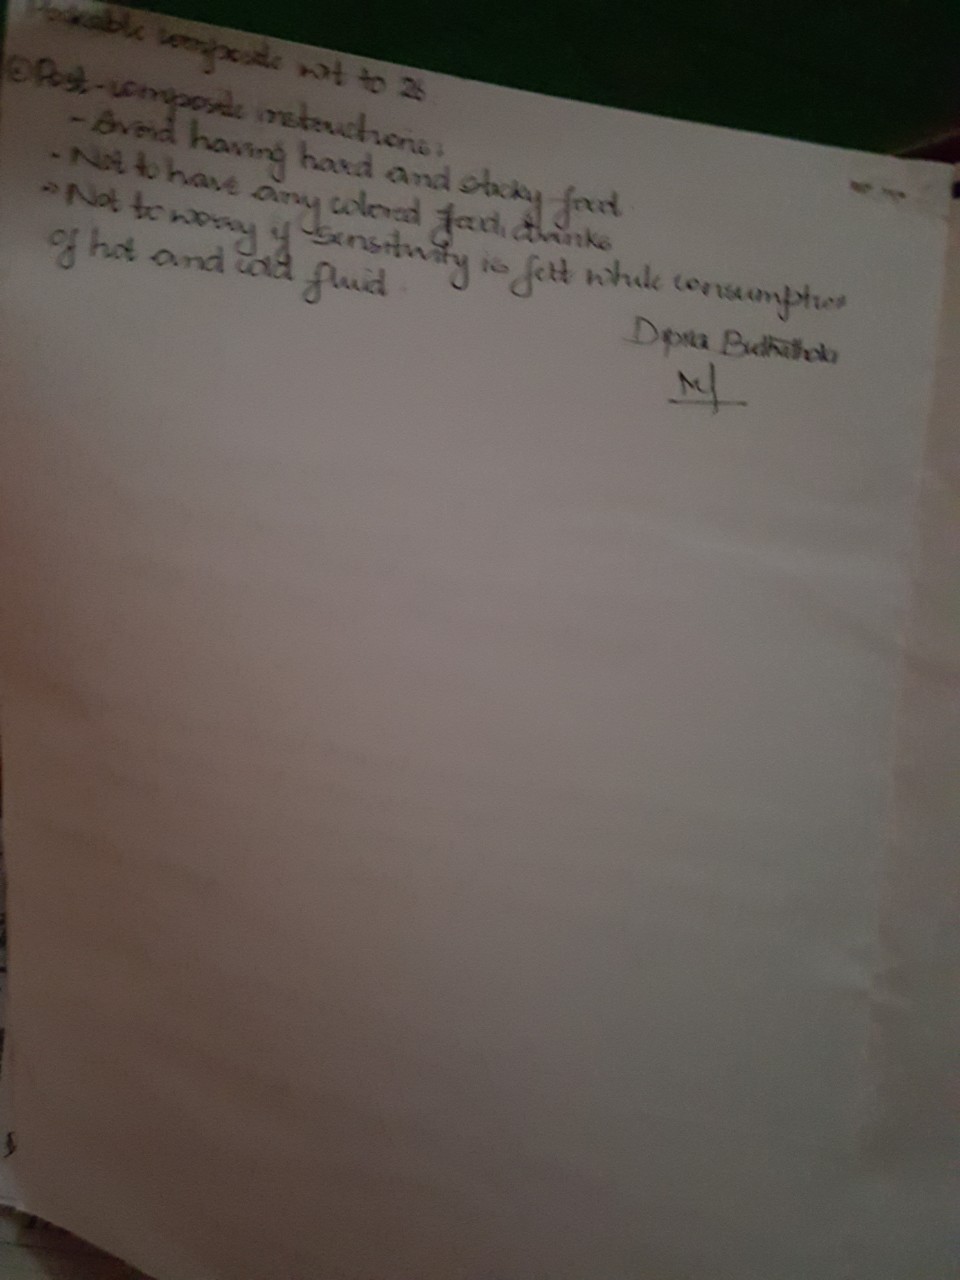 composite wrt to 26
Post-composite instructions:
- Avoid having hard and sticky food.
- Not to have any colored food, drinks
-> Not to worry if sensitivity is felt while consumption
of hot and cold fluid.
Budhathoki